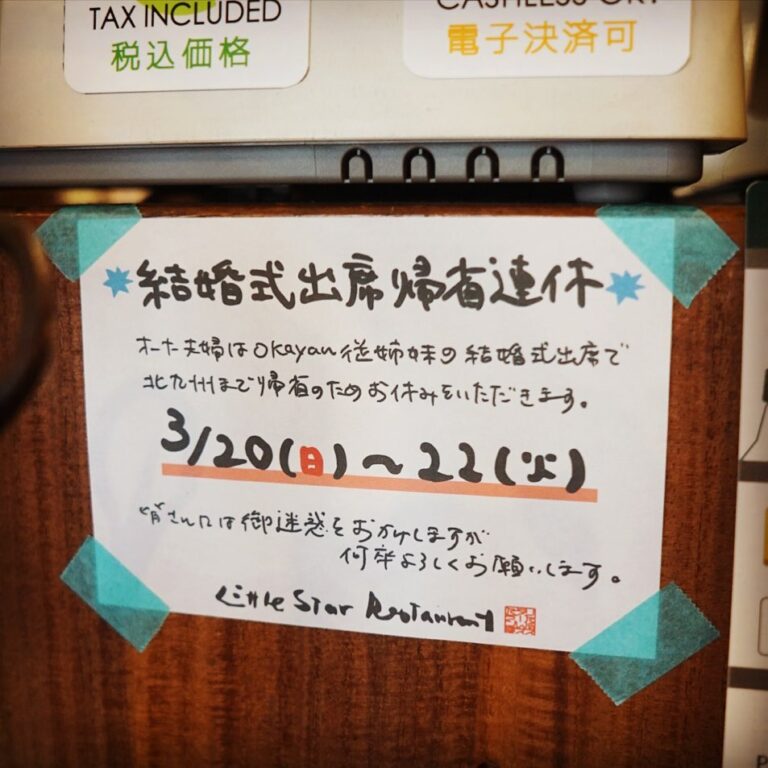 TAX INCLUDED
税込価格
CASHLESS OK!
電子決済可
結婚式出席帰省連休
オーナー夫婦はOkayan従姉妹の結婚式出席で
北九州まで帰省のためお休みをいただきます。
3/20(日)~22(火)
皆さんには御迷惑をおかけしますが
何卒よろしくお願いします。
Little Star Restaurant